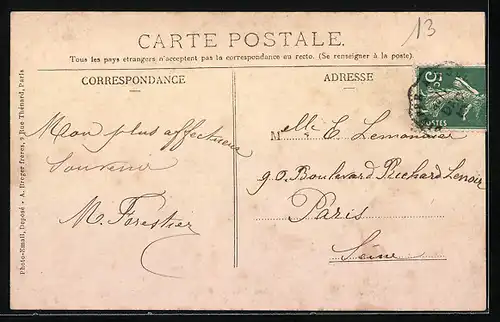 13
CARTE POSTALE.
Tous les pays étrangers n'acceptent pas la correspondance au recto. (Se renseigner à la poste).
CORRESPONDANCE
ADRESSE
5c
POSTES
Mon plus affectueux
Souvenir
M. Forestier
Melle E Lemonnier
90. Boulevard Richard Lenoir
Paris
Seine
Photo-Email, Deposé - A. Breger frères, 9 Rue Thénard, Paris